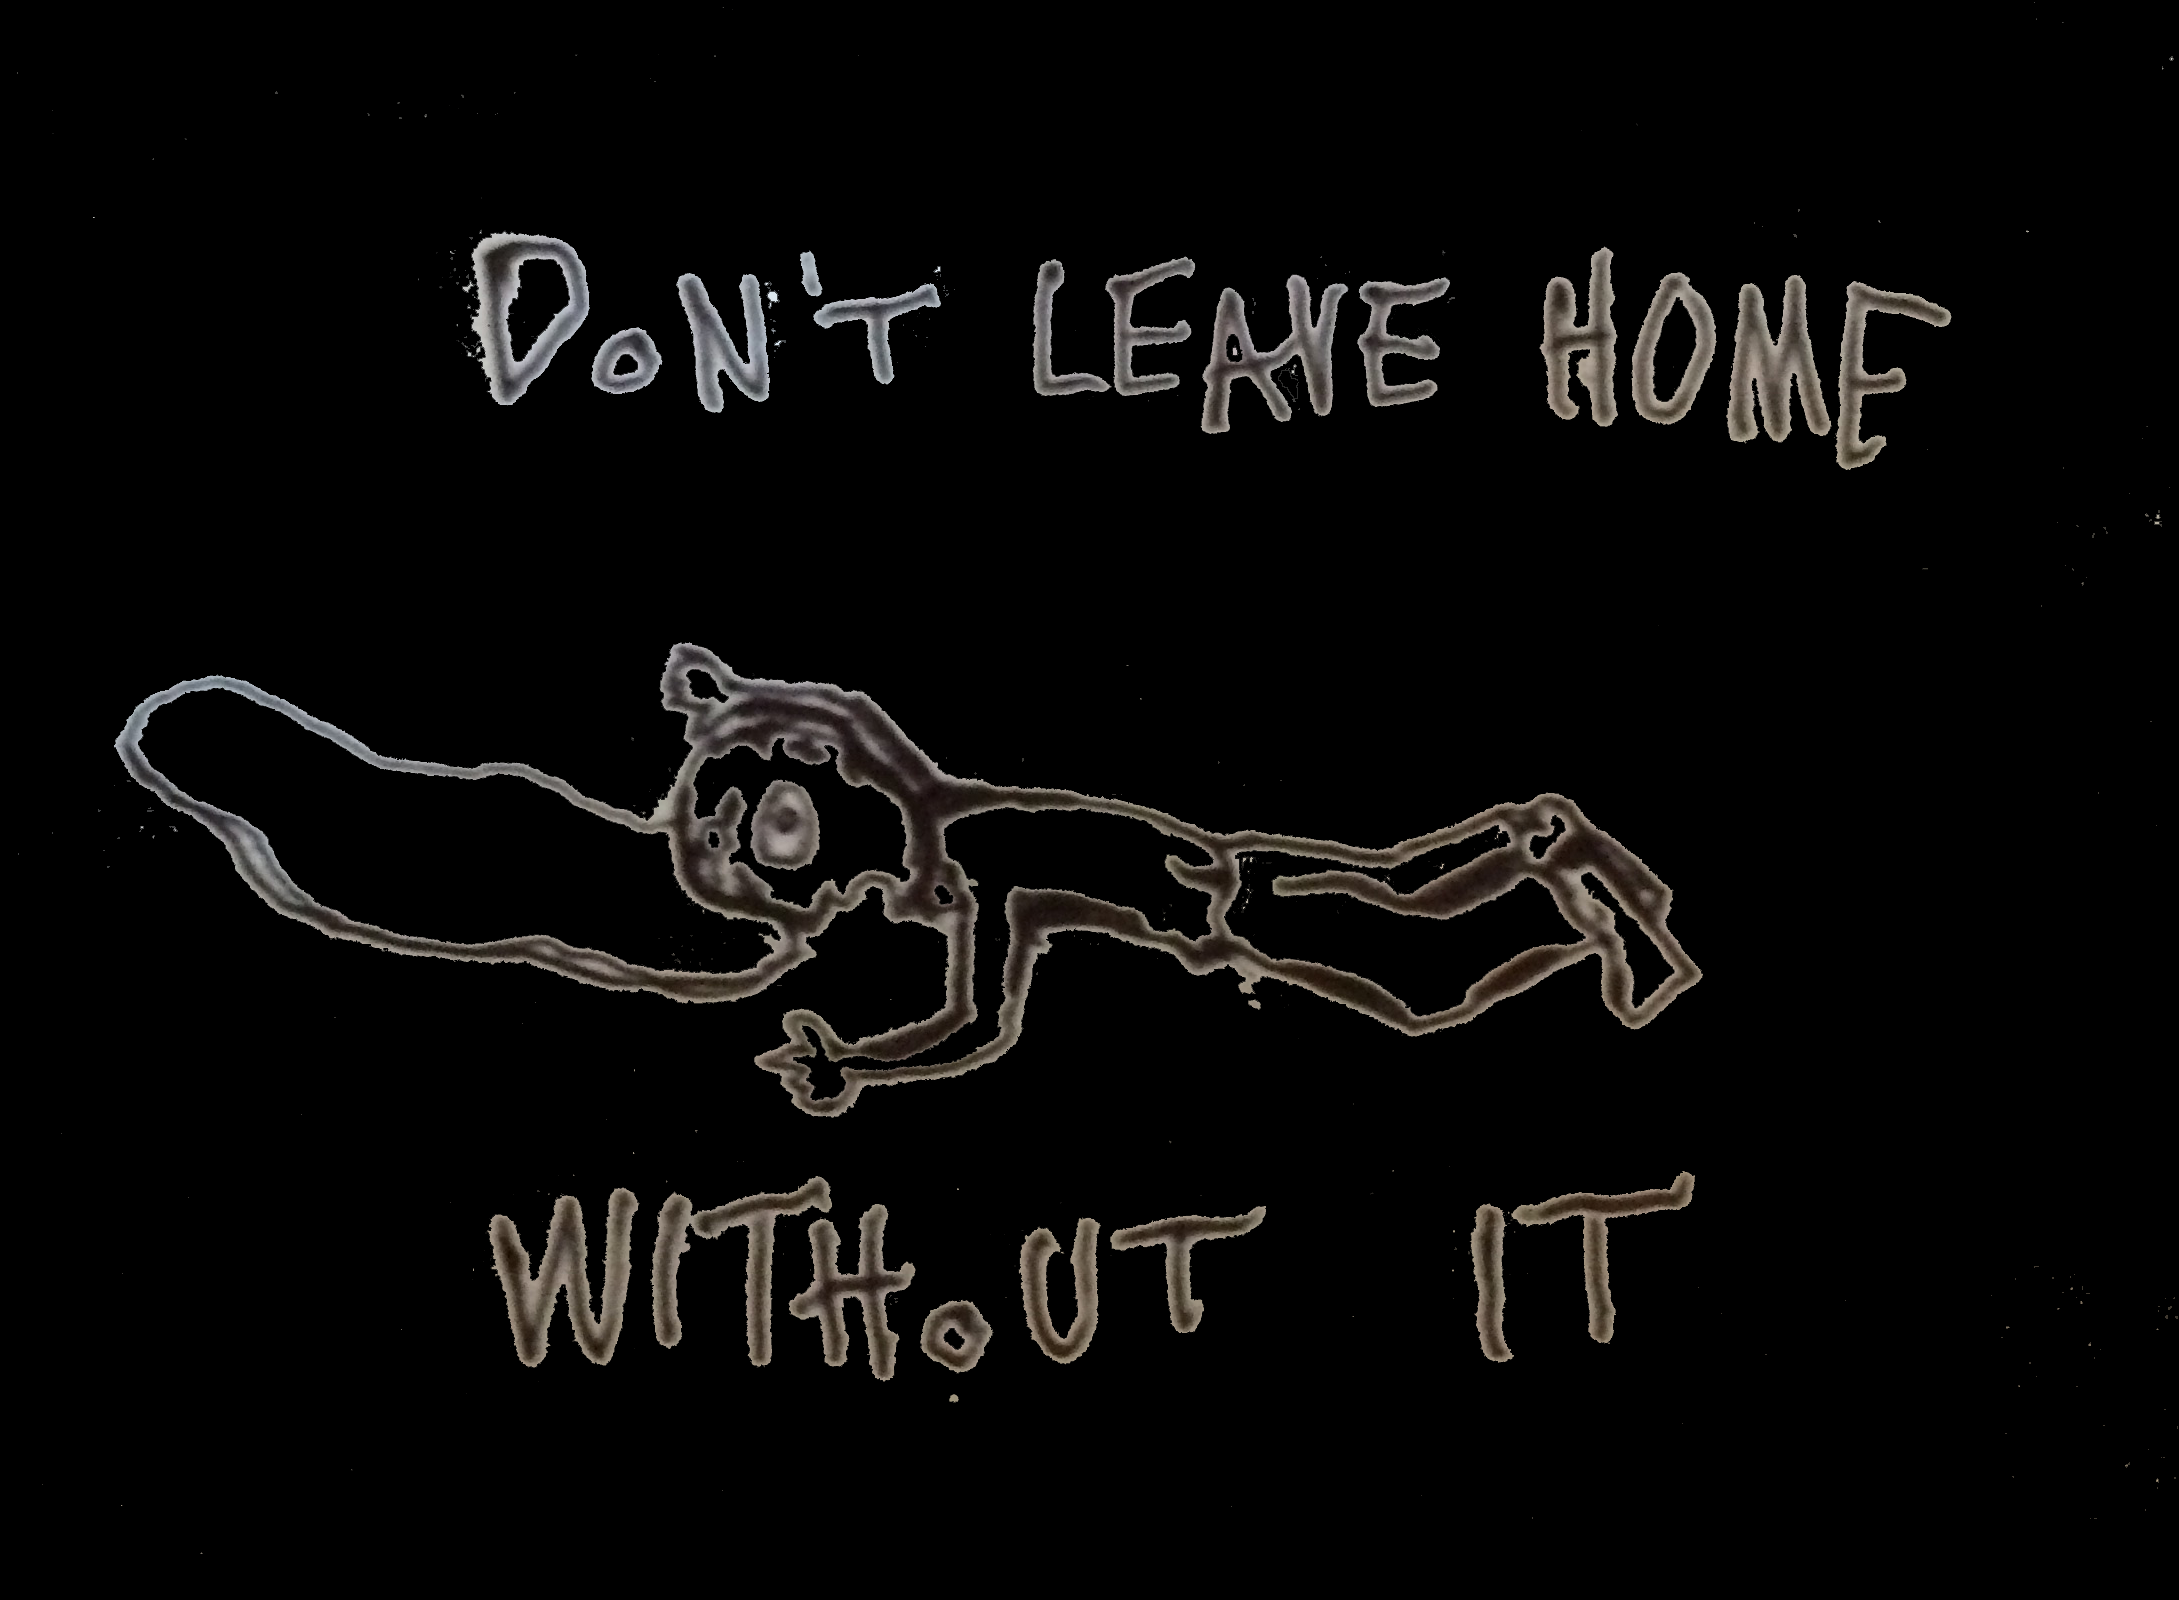 DON'T LEAVE HOME
WITHOUT IT